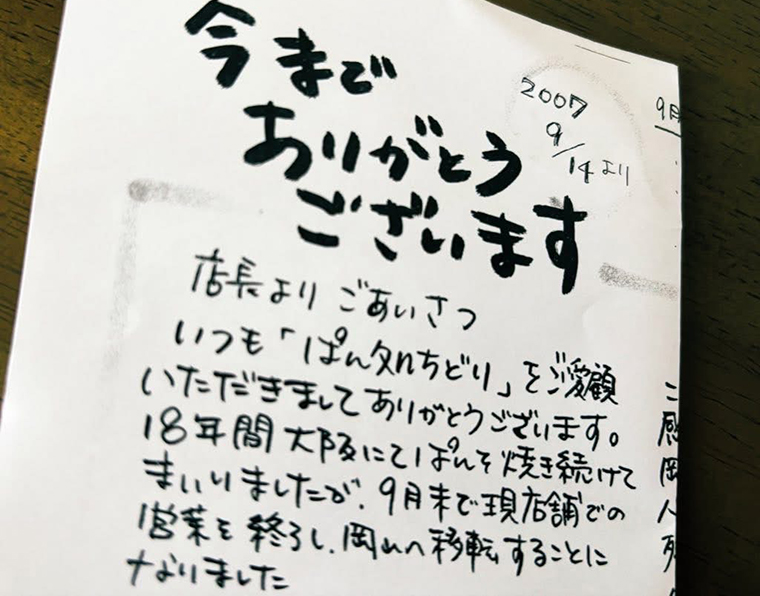 今まで
ありがとう
ございます
2007
9/14より
店長より ごあいさつ
いつも「ぱん処ちどり」をご愛顧
いただきましてありがとうございます。
18年間大阪にてぱんを焼き続けて
まいりましたが、9月末で現店舗での
営業を終了し、岡山へ移転することに
なりました
9月
こ
感
岡
人